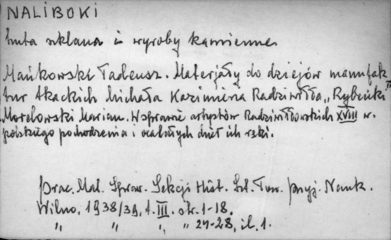 NALIBOKI
huta szklana i wyroby kamienne
Mańkowski Tadeusz. Materjały do dziejów manufak
tur tkackich Michała Kazimierza Radziwiłła „Rybeńki"
Morelowski Marian. Wsprawie artystów Radziwiłłowskich XVIII w.
polskiego pochodzenia i ocalałych dzieł ich ręki.
Prac. Mat. Spraw. Sekcji Hist. Szt. Tow. Przyj. Nauk.
Wilno, 1938/39, t. III. str. 1-18.
" " " " 27-28, il. 1.